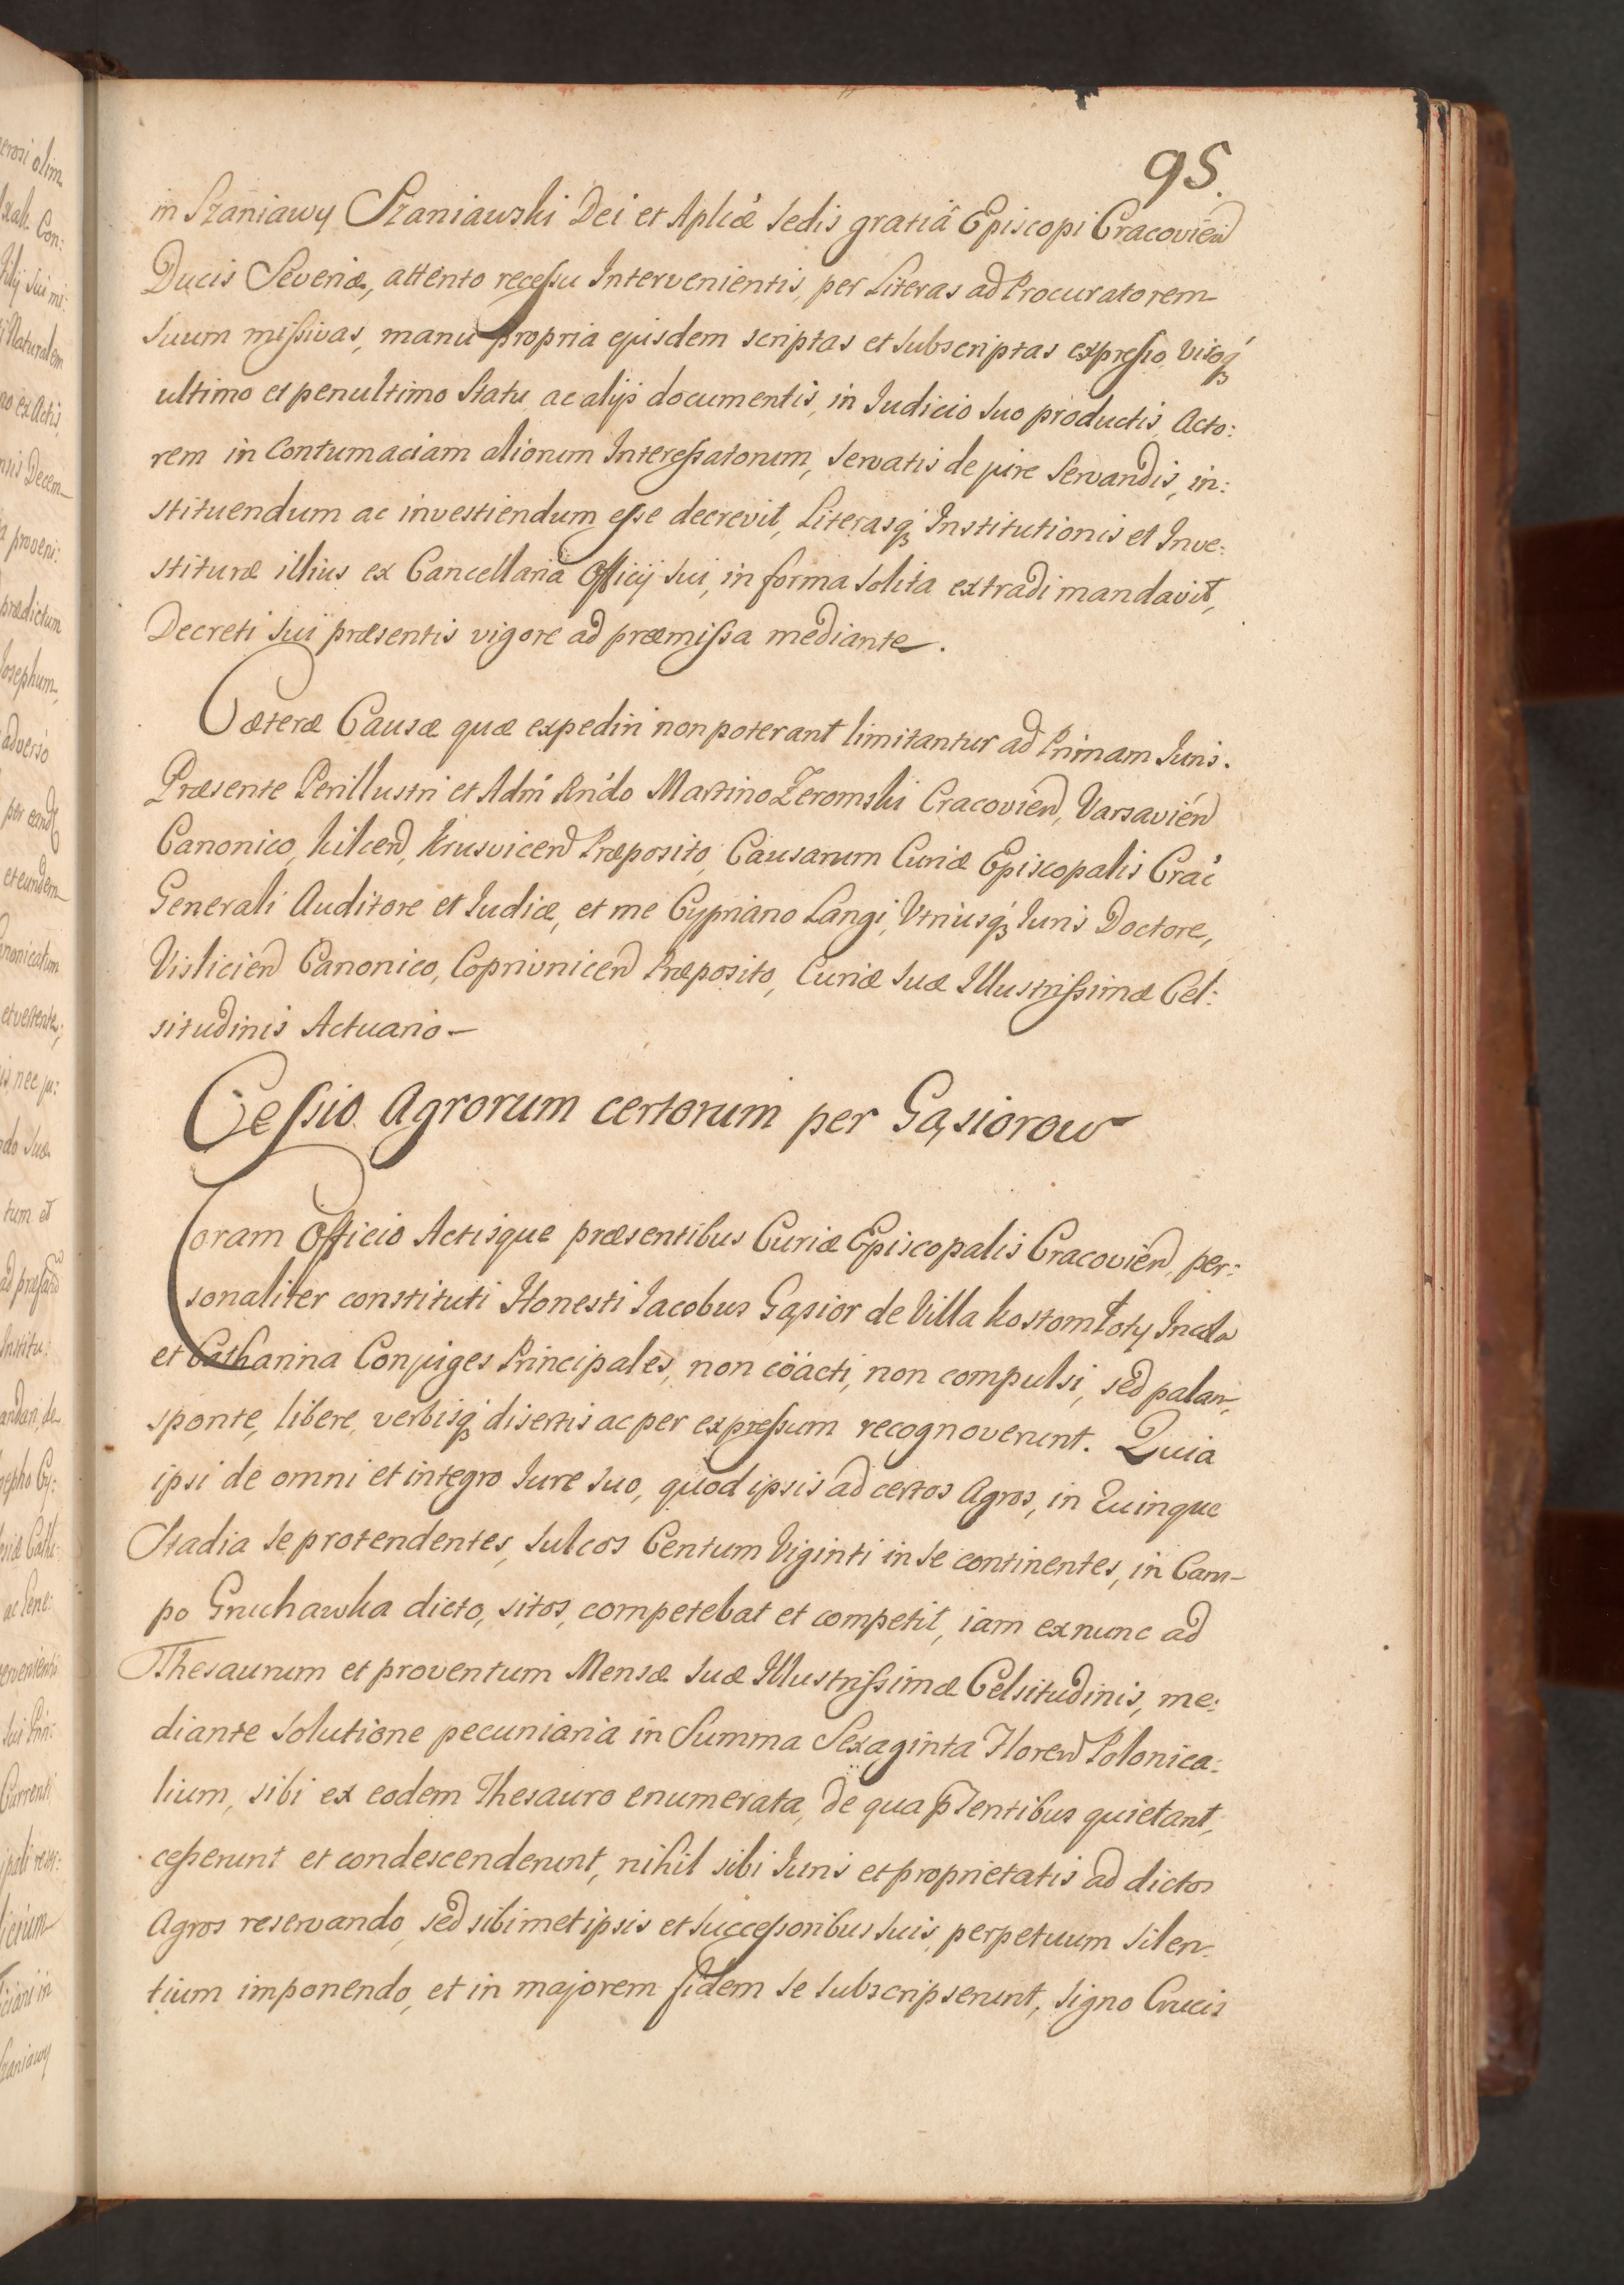 95.
in Szaniawy Szaniawski Dei et Aplicæ Sedis gratiâ Episcopi Cracovien
Ducis Severiæ, attento recessu Intervenientis, per Literas ad Procuratorem
Suum missivas, manu propria ejusdem scriptas et subscriptas expresso, visoq3
ultimo et penultimo Statu ac alijs documentis, in Judicio suo productis, Acto:
rem in Contumaciam aliorum Interessatorum, servatis de jure Servandis, in:
stituendum ac investiendum esse decrevit, Literasq3 Institutionis et Inve:
stituræ illius ex Cancellaria Officij sui, in forma solita extradi mandavit,
Decreti sui præsentis vigore ad præmissa mediante.
Cæteræ Causæ quæ expediri non poterant limitantur ad Primam Juris.
Præsente Perillustri et Adm Rndo Martino Zeromski Cracovien, Varsavien
Canonico, Kilcen, Krusvicen Præposito, Causarum Curiæ Episcopalis Crac
Generali Auditore et Judice, et me Cypriano Langi, Utriusq3 Juris Doctore,
Vislicien Canonico, Coprivnicen Præposito, Curiæ Suæ Illustrissimæ Cel:
situdinis Actuario –
Cessio Agrorum certorum per Gąsiorow
Coram Officio Actisque præsentibus Curiæ Episcopalis Cracovien, per:
sonaliter constituti Honesti Jacobus Gąsior de Villa Kostomłoty Incola
et Catharina Conjuges Principales, non coacti, non compulsi, sed palam,
sponte, libere, verbisq3 disertis ac per expressum recognoverunt. Quia
ipsi de omni et integro Jure suo, quod ipsis ad certos Agros, in Quinque
Stadia se protendentes, Sulcos Centum Viginti in se continentes, in Cam–
po Gruchawka dicto, sitos, competebat et competit, iam ex nunc ad
Thesaurum et proventum Mensæ Suæ Illustrissimæ Celsitudinis, me:
diante solutione pecuniaria in Summa Sexaginta Floren Polonica:
lium, sibi ex eodem Thesauro enumerata, de qua pntibus quietant,
cesserunt et condescenderunt, nihil sibi Juris et proprietatis ad dictos
Agros reservando, sed sibimet ipsis et Successoribus suis, perpetuum silen:
tium imponendo, et in majorem fidem se subscripserunt, signo Crucis